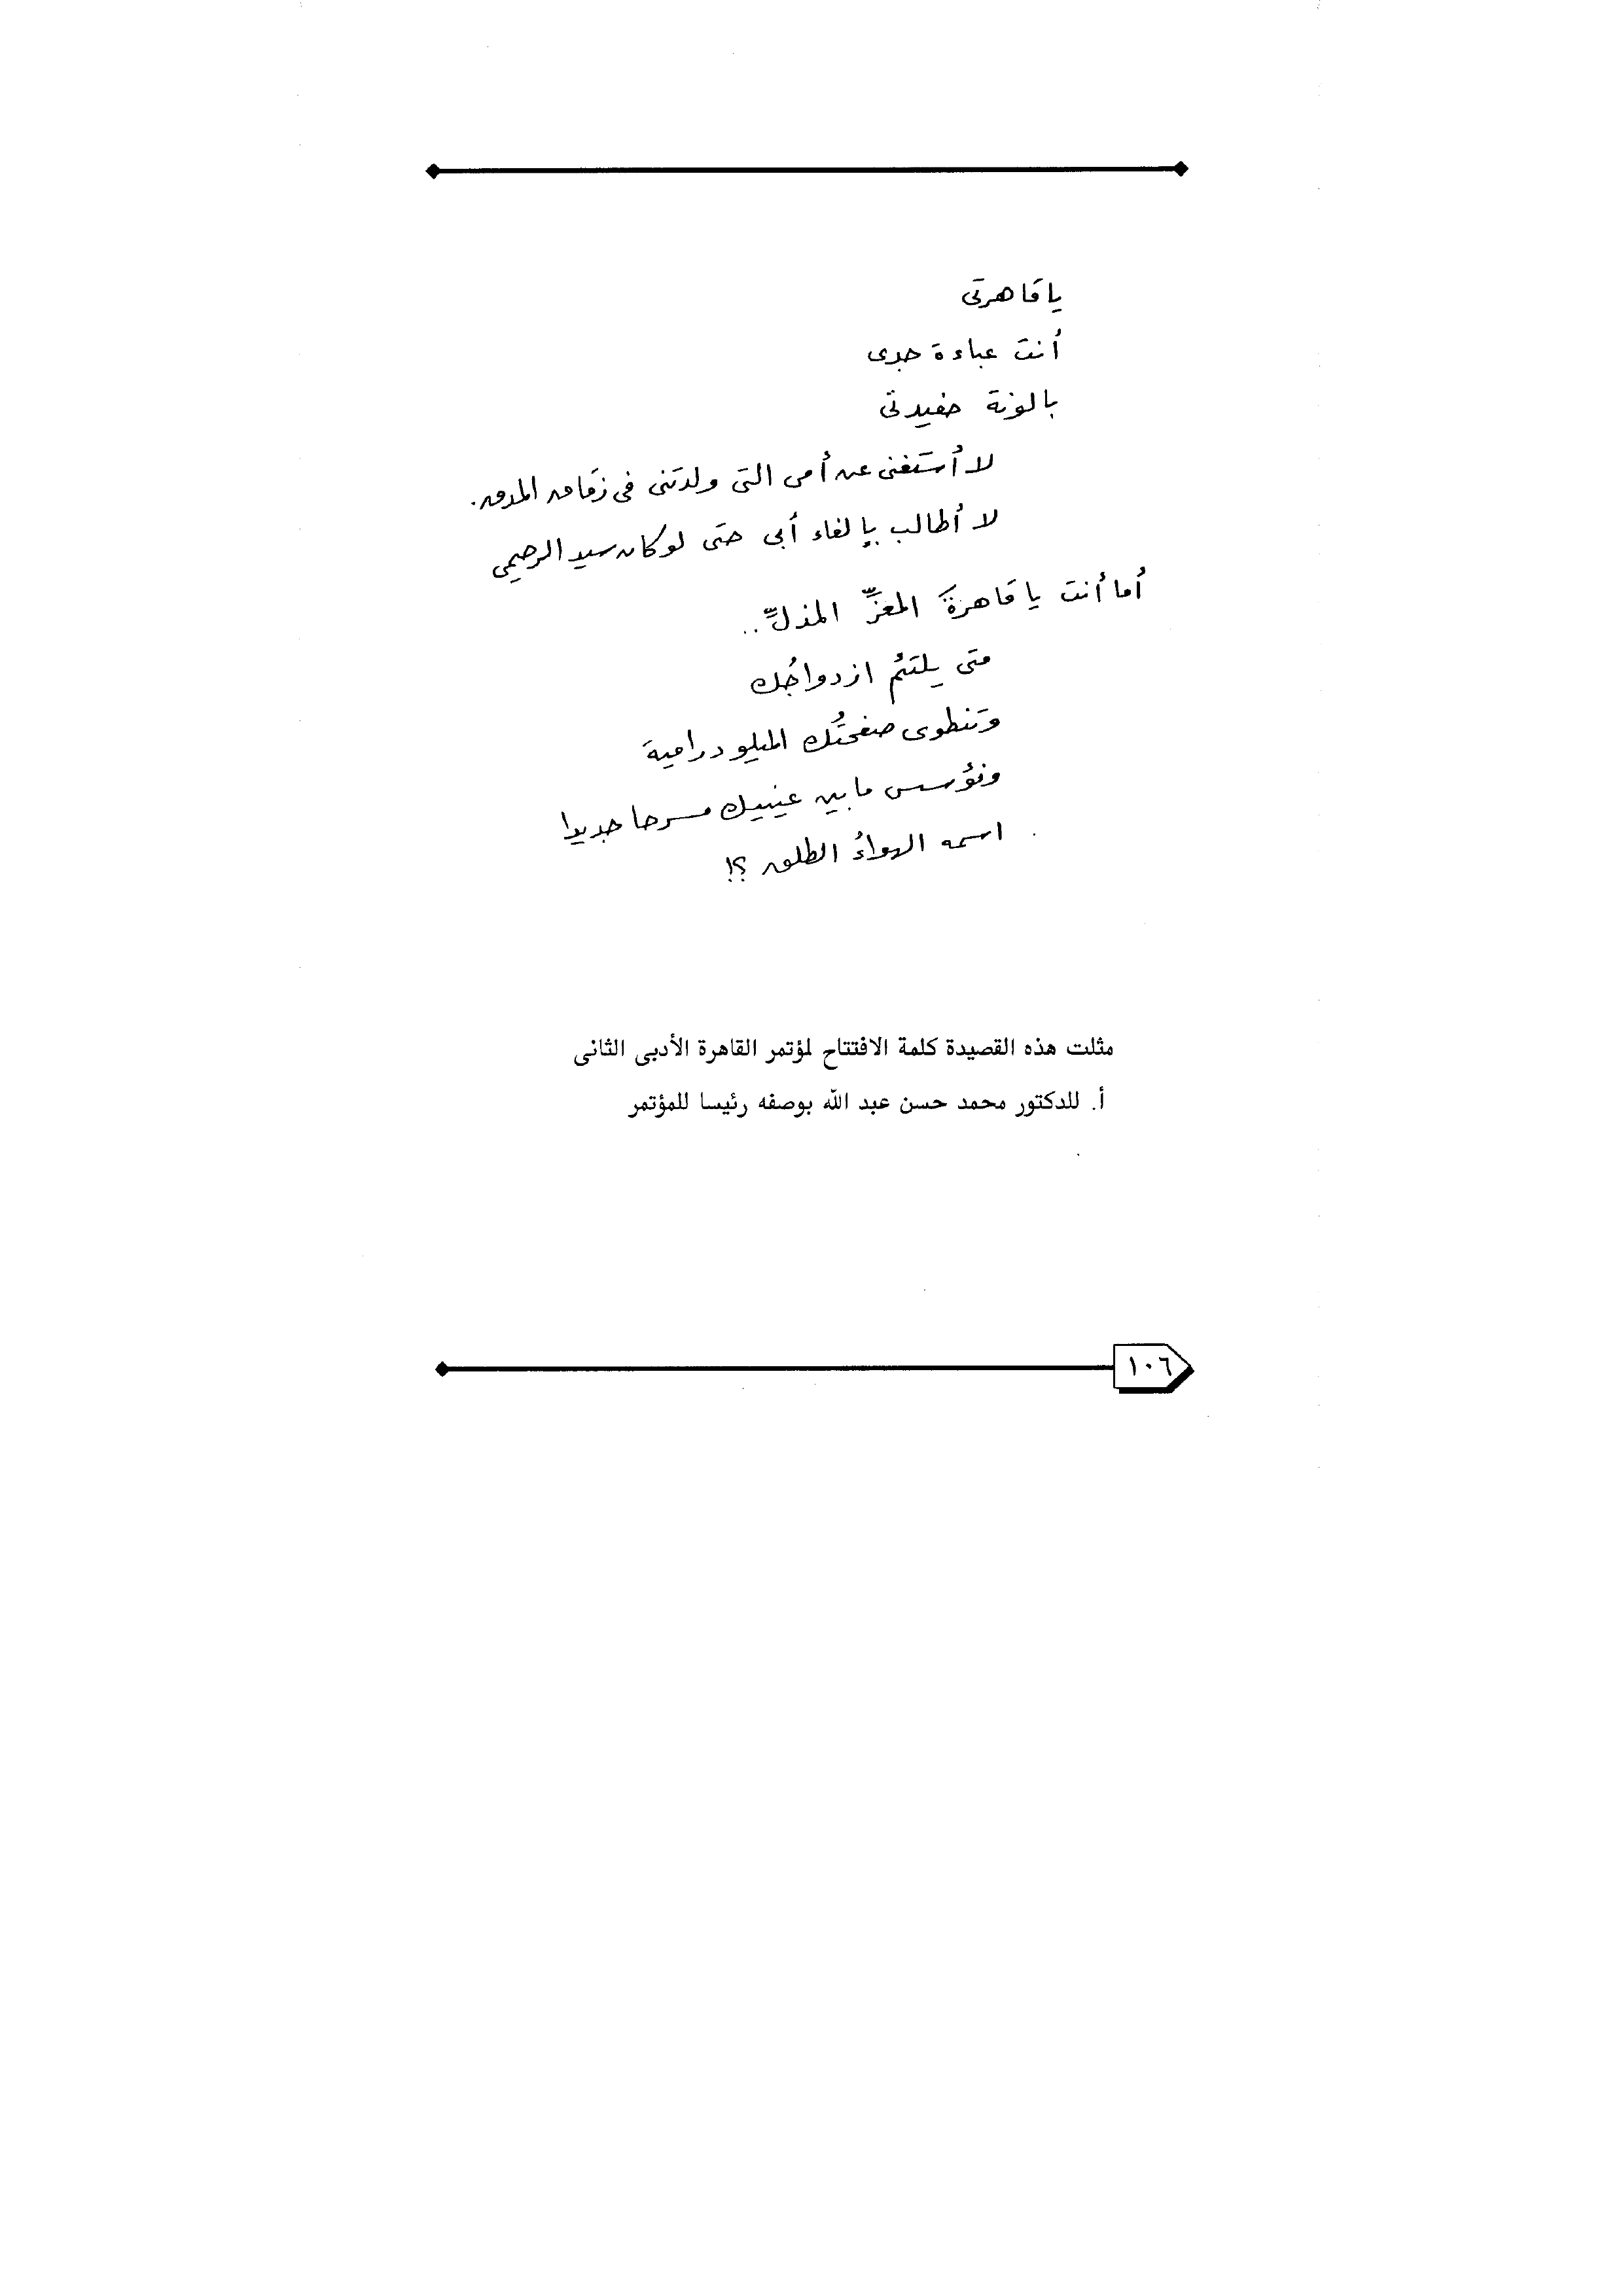 يا قاهرتى
أنت عباءة جدى
بالونة حفيدتى
لا أستغنى عن أمى التى ولدتنى فى زقاق المدق.
لا أطالب بإلغاء أبى حتى لو كان سيد الرحيمى
أما أنت يا قاهرةَ المعزِّ المذلِّ..
متى يلتئم ازدواجُك
وتنطوى صفحتُك الميلودرامية
ونؤسس ما بين عينيك مسرحا جديدا
اسمه الهواءُ الطلق ؟!
مثلت هذه القصيدة كلمة الافتتاح لمؤتمر القاهرة الأدبى الثانى
أ. للدكتور محمد حسن عبد الله بوصفه رئيسا للمؤتمر
١٠٦